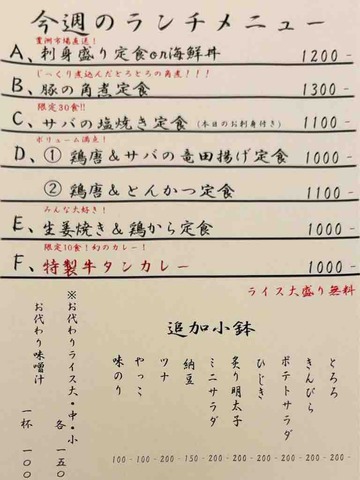 今週のランチメニュー
豊洲市場直送！
A、刺身盛り定食or海鮮丼 1200-
じっくり煮込んだとろとろの角煮！！！
B、豚の角煮定食 1300-
限定30食!!
C、サバの塩焼き定食（本日のお刺身付き） 1100-
ボリューム満点！
D、① 鶏唐＆サバの竜田揚げ定食 1000-
② 鶏唐＆とんかつ定食 1100
みんな大好き！
E、生姜焼き＆鶏から定食 1000-
限定10食！幻のカレー！
F、特製牛タンカレー 1000-
ライス大盛り無料
追加小鉢
とろろ 200-
きんぴら 200-
ポテトサラダ 200-
ひじき 200-
炙り明太子 200-
ミニサラダ 200-
納豆 150
ツナ 200-
やっこ 100-
味のり 100-
※お代わりライス大・中・小 各一五〇
お代わり味噌汁 一杯一〇〇